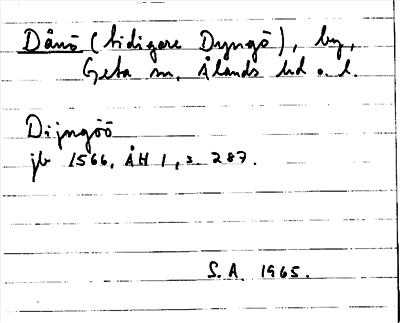 Dånö (tidigare Dyngö), by,
Geta sn, Ålands hd o. l.
Dijngöö
jb 1566, ÅH 1, s. 287.
S. A. 1965.